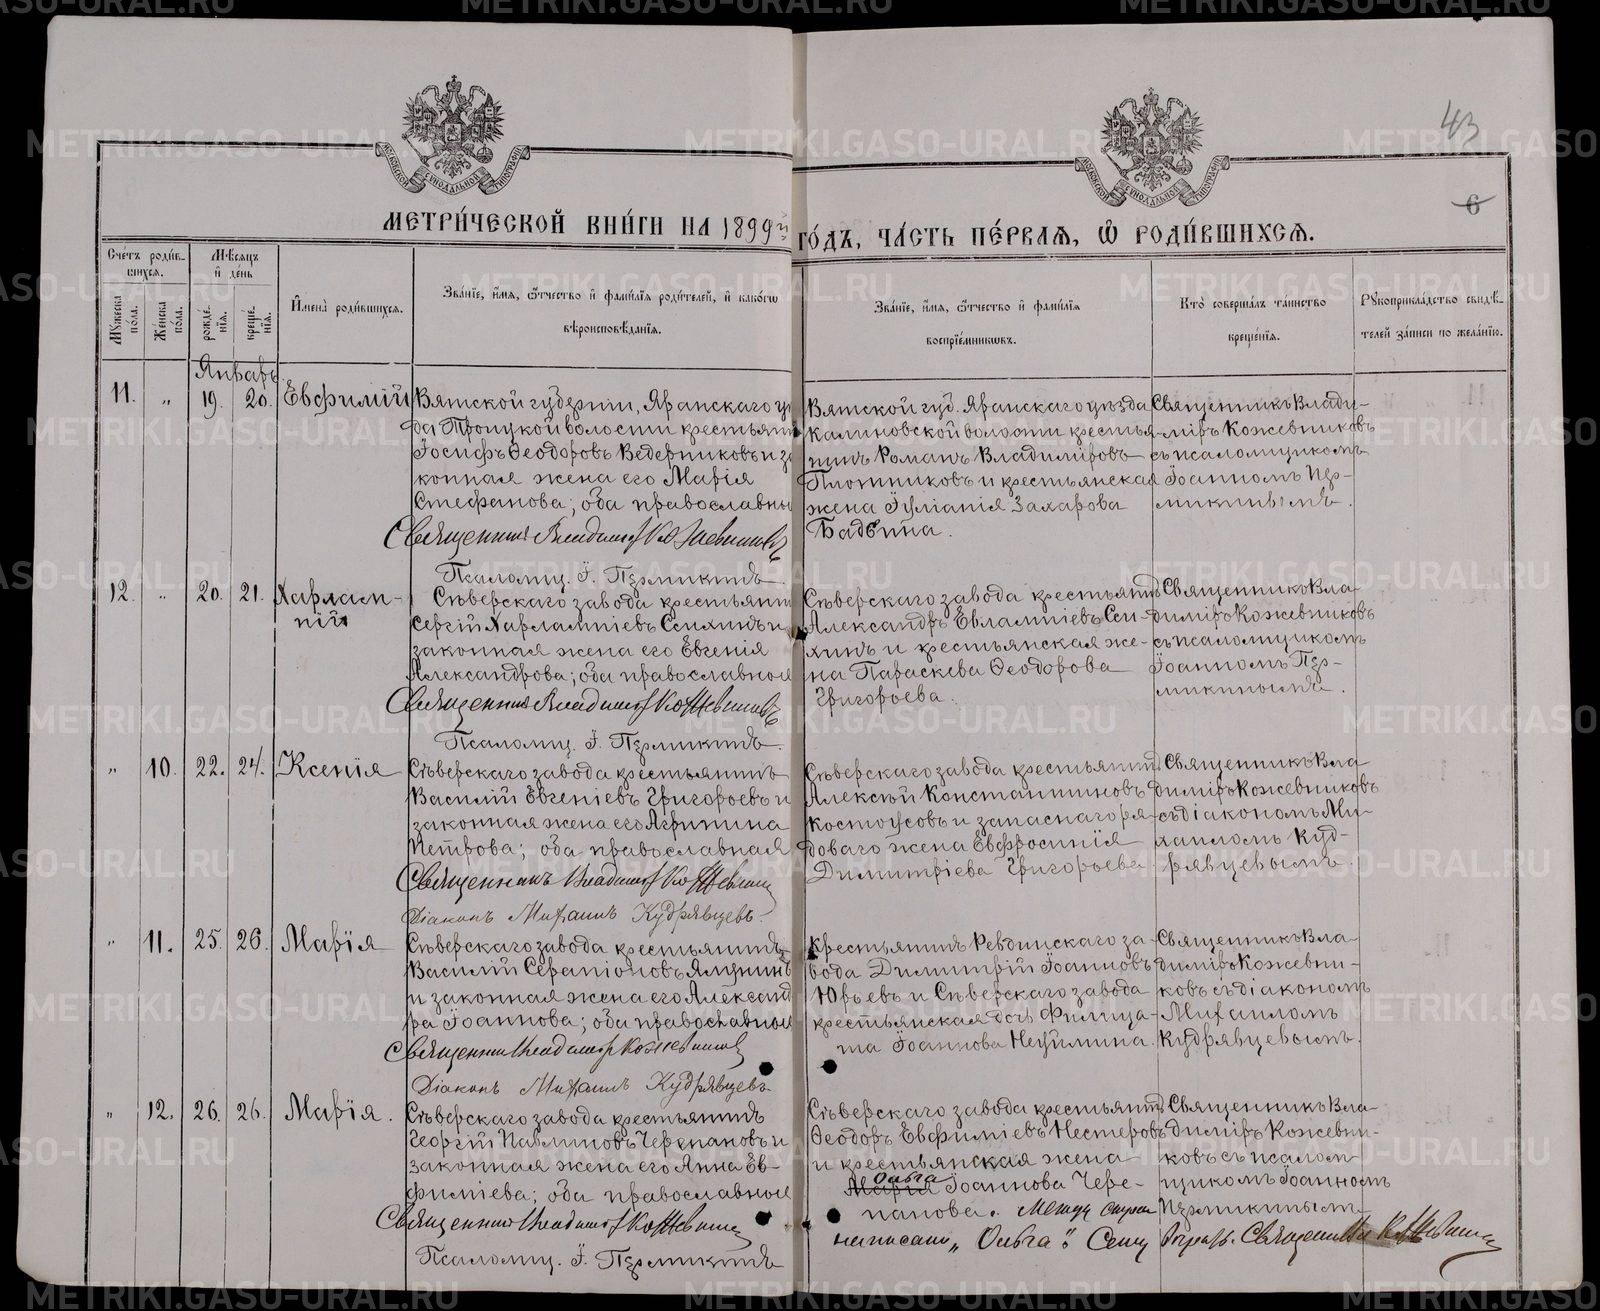 43
6
МЕТРИЧЕСКОЙ КНИГИ НА 1899й ГОДЪ, ЧАСТЬ ПЕРВАЯ, Ѡ РОДИВШИХСЯ.
Счетъ родившихся.
Мужеска пола.
Женска пола.
Мѣсяцъ и день
рожденія.
крещенія.
Имена родившихся.
Званіе, имя, отчество и фамилія родителей, и какогω
вѣроисповѣданія.
Званіе, имя, отчество и фамилія
воспріемниковъ.
Кто совершалъ таинство
крещенія.
Рукоприкладство свидѣ-
телей записи по желанію.
Январь
11. „ 19. 20. Евфимій
Вятской губерніи, Яранскаго уѣ
да Троицкой волости крестьянин
Іосифъ Ѳеодоровъ Ведерниковъ и за
конная жена его Марія
Стефанова; оба православны
Священникъ Владиміръ Кожевниковъ
Псаломщ. І. Пермикинъ
Вятской губ. Яранскаго уѣзда
Калиновской волости крестья-
нинъ Романъ Владиміровъ
Плотниковъ и крестьянская
жена Іуліанія Захарова
Бадьина.
Священникъ Влади-
міръ Кожевниковъ
съ псаломщикомъ
Іоанномъ Пер-
микинымъ.
12. „ 20. 21. Харлам-
пій
Сѣверскаго завода крестьянин
Сергій Харлампіевъ Сеихинъ и
законная жена его Евгенія
Александрова; оба православные
Священникъ Владиміръ Кожевниковъ
Псаломщ. І. Пермикинъ.
Сѣверскаго завода крестьянинъ
Александръ Евлампіевъ Сеи-
хинъ и крестьянская же-
на Параскева Ѳеодорова
Григороева.
Священникъ Вла-
диміръ Кожевниковъ
съ псаломщикомъ
Іоанномъ Пер-
микинымъ.
„ 10. 22. 24. Ксенія
Сѣверскаго завода крестьянинъ
Василій Евгеніевъ Григороевъ и
законная жена его Агрипина
Петрова; оба православная
Священникъ Владиміръ Кожевник
Діаконъ Михаилъ Кудрявцевъ.
Сѣверскаго завода крестьянинъ
Алексѣй Константиновъ
Костоусовъ и запаснаго ря-
доваго жена Евфросинія
Димитріева Григороева
Священникъ Вла-
диміръ Кожевниковъ
съ діакономъ Ми-
хаиломъ Куд-
рявцевымъ.
„ 11. 25. 26. Марія
Сѣверскаго завода крестьянинъ
Василій Серапіоновъ Ялунинъ
и законная жена его Александ
ра Іоаннова; оба православные
Священникъ Владиміръ Кожевников
Діаконъ Михаилъ Кудрявцевъ
Крестьянинъ Ревдинскаго за-
вода Димитрій Іоанновъ
Юрьевъ и Сѣверскаго завода
крестьянская дочь Филица-
та Іоаннова Неуймина.
Священникъ Вла-
диміръ Кожевни-
ковъ съ діакономъ
Михаиломъ
Кудрявцевымъ.
„ 12. 26. 26. Марія.
Сѣверскаго завода крестьянинъ
Георгій Павлиновъ Черепановъ и
законная жена его Анна Ев-
фиміева; оба православные
Священникъ Владиміръ Кожевник
Псаломщ. І. Пермикинъ
Сѣверскаго завода крестьянинъ
Ѳеодоръ Евфиміевъ Нестеровъ
и крестьянская жена
Ольга
Марія Іоаннова Чере-
панова. Между строк
написано „Ольга". Сему вѣрить. Священникъ Кожевник
Священникъ Вла-
диміръ Кожевни-
ковъ съ псалом-
щикомъ Іоанномъ
Пермикинымъ
METRIKI.GASO-URAL.RU